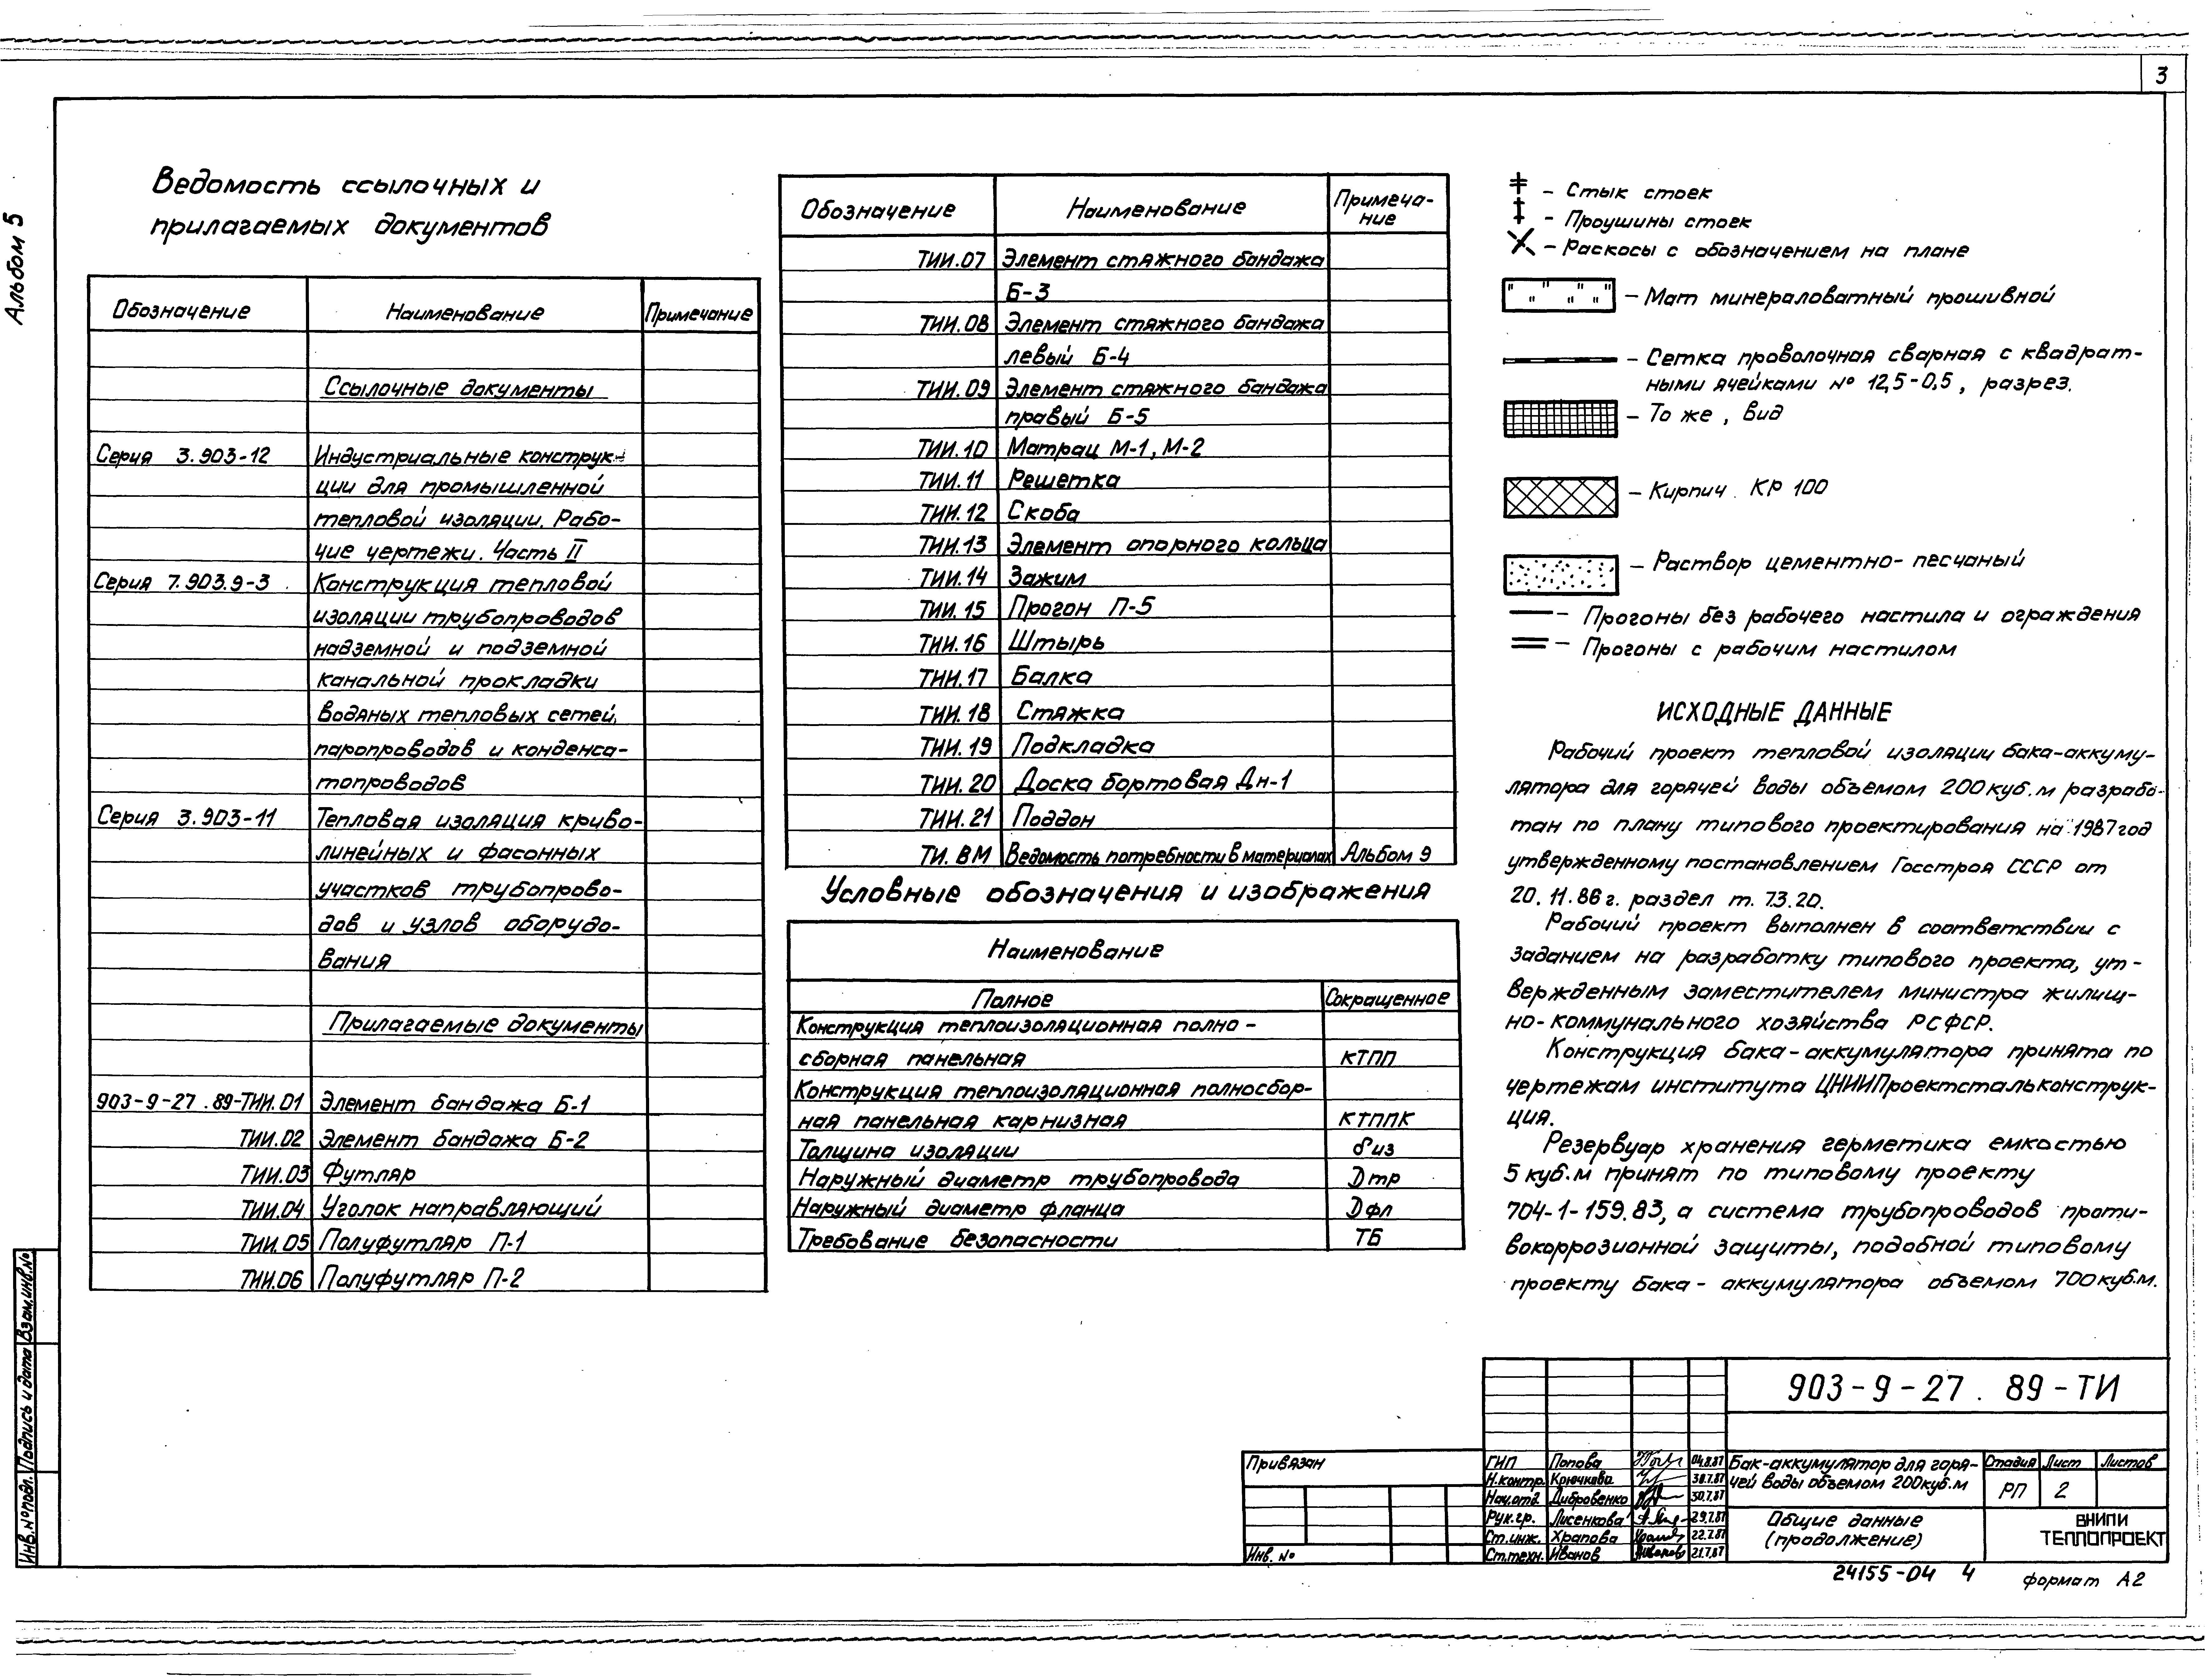 3
Альбом 5
Ведомость ссылочных и
прилагаемых документов
Обозначение Наименование Примечание
Ссылочные документы
Серия 3.903-12 Индустриальные конструк-
ции для промышленной
тепловой изоляции. Рабо-
чие чертежи. Часть II
Серия 7.903.9-3 Конструкция тепловой
изоляции трубопроводов
надземной и подземной
канальной прокладки
водяных тепловых сетей,
паропроводов и конденса-
топроводов
Серия 3.903-11 Тепловая изоляция криво-
линейных и фасонных
участков трубопрово-
дов и узлов оборудо-
вания
Прилагаемые документы
903-9-27.89-ТИИ.01 Элемент бандажа Б-1
ТИИ.02 Элемент бандажа Б-2
ТИИ.03 Футляр
ТИИ.04 Уголок направляющий
ТИИ.05 Полуфутляр П-1
ТИИ.06 Полуфутляр П-2
Обозначение Наименование Примеча-
ние
ТИИ.07 Элемент стяжного бандажа
Б-3
ТИИ.08 Элемент стяжного бандажа
левый Б-4
ТИИ.09 Элемент стяжного бандажа
правый Б-5
ТИИ.10 Матрац М-1, М-2
ТИИ.11 Решетка
ТИИ.12 Скоба
ТИИ.13 Элемент опорного кольца
ТИИ.14 Зажим
ТИИ.15 Прогон П-5
ТИИ.16 Штырь
ТИИ.17 Балка
ТИИ.18 Стяжка
ТИИ.19 Подкладка
ТИИ.20 Доска бортовая Дн-1
ТИИ.21 Поддон
ТИ.ВМ Ведомость потребности в материалах Альбом 9
Условные обозначения и изображения
Наименование
Полное Сокращенное
Конструкция теплоизоляционная полно-
сборная панельная КТПП
Конструкция теплоизоляционная полносбор-
ная панельная карнизная КТППК
Толщина изоляции δиз
Наружный диаметр трубопровода Дтр
Наружный диаметр фланца Дфл
Требование безопасности ТБ
- Стык стоек
- Проушины стоек
- Раскосы с обозначением на плане
- Мат минераловатный прошивной
- Сетка проволочная сварная с квадрат-
ными ячейками № 12,5-0,5, разрез.
- То же, вид
- Кирпич КР 100
- Раствор цементно-песчаный
- Прогоны без рабочего настила и ограждения
- Прогоны с рабочим настилом
ИСХОДНЫЕ ДАННЫЕ
Рабочий проект тепловой изоляции бака-аккуму-
лятора для горячей воды объемом 200 куб.м разрабо-
тан по плану типового проектирования на 1987 год
утвержденному постановлением Госстроя СССР от
20.11.86 г. раздел т. 7.3.20.
Рабочий проект выполнен в соответствии с
заданием на разработку типового проекта, ут-
вержденным заместителем министра жилищ-
но-коммунального хозяйства РСФСР.
Конструкция бака-аккумулятора принята по
чертежам института ЦНИИПроектстальконструк-
ция.
Резервуар хранения герметика емкостью
5 куб.м принят по типовому проекту
704-1-159.83, а система трубопроводов проти-
вокоррозионной защиты, подобной типовому
проекту бака-аккумулятора объемом 700 куб.м.
903-9-27.89-ТИ
Привязан
Инв. №
ГИП Попова 04.8.87
Н.контр. Крючкова 30.7.87
Нач.отд. Дибровенко 30.7.87
Рук.гр. Лисенкова 29.7.87
Ст.инж. Храпова 22.7.87
Ст.техн. Иванов 21.7.87
Бак-аккумулятор для горя-
чей воды объемом 200 куб.м
Стадия Лист Листов
РП 2
Общие данные
(продолжение)
ВНИПИ
ТЕПЛОПРОЕКТ
24155-04 4
формат А2
Инв. № подл. Подпись и дата Взам. инв. №